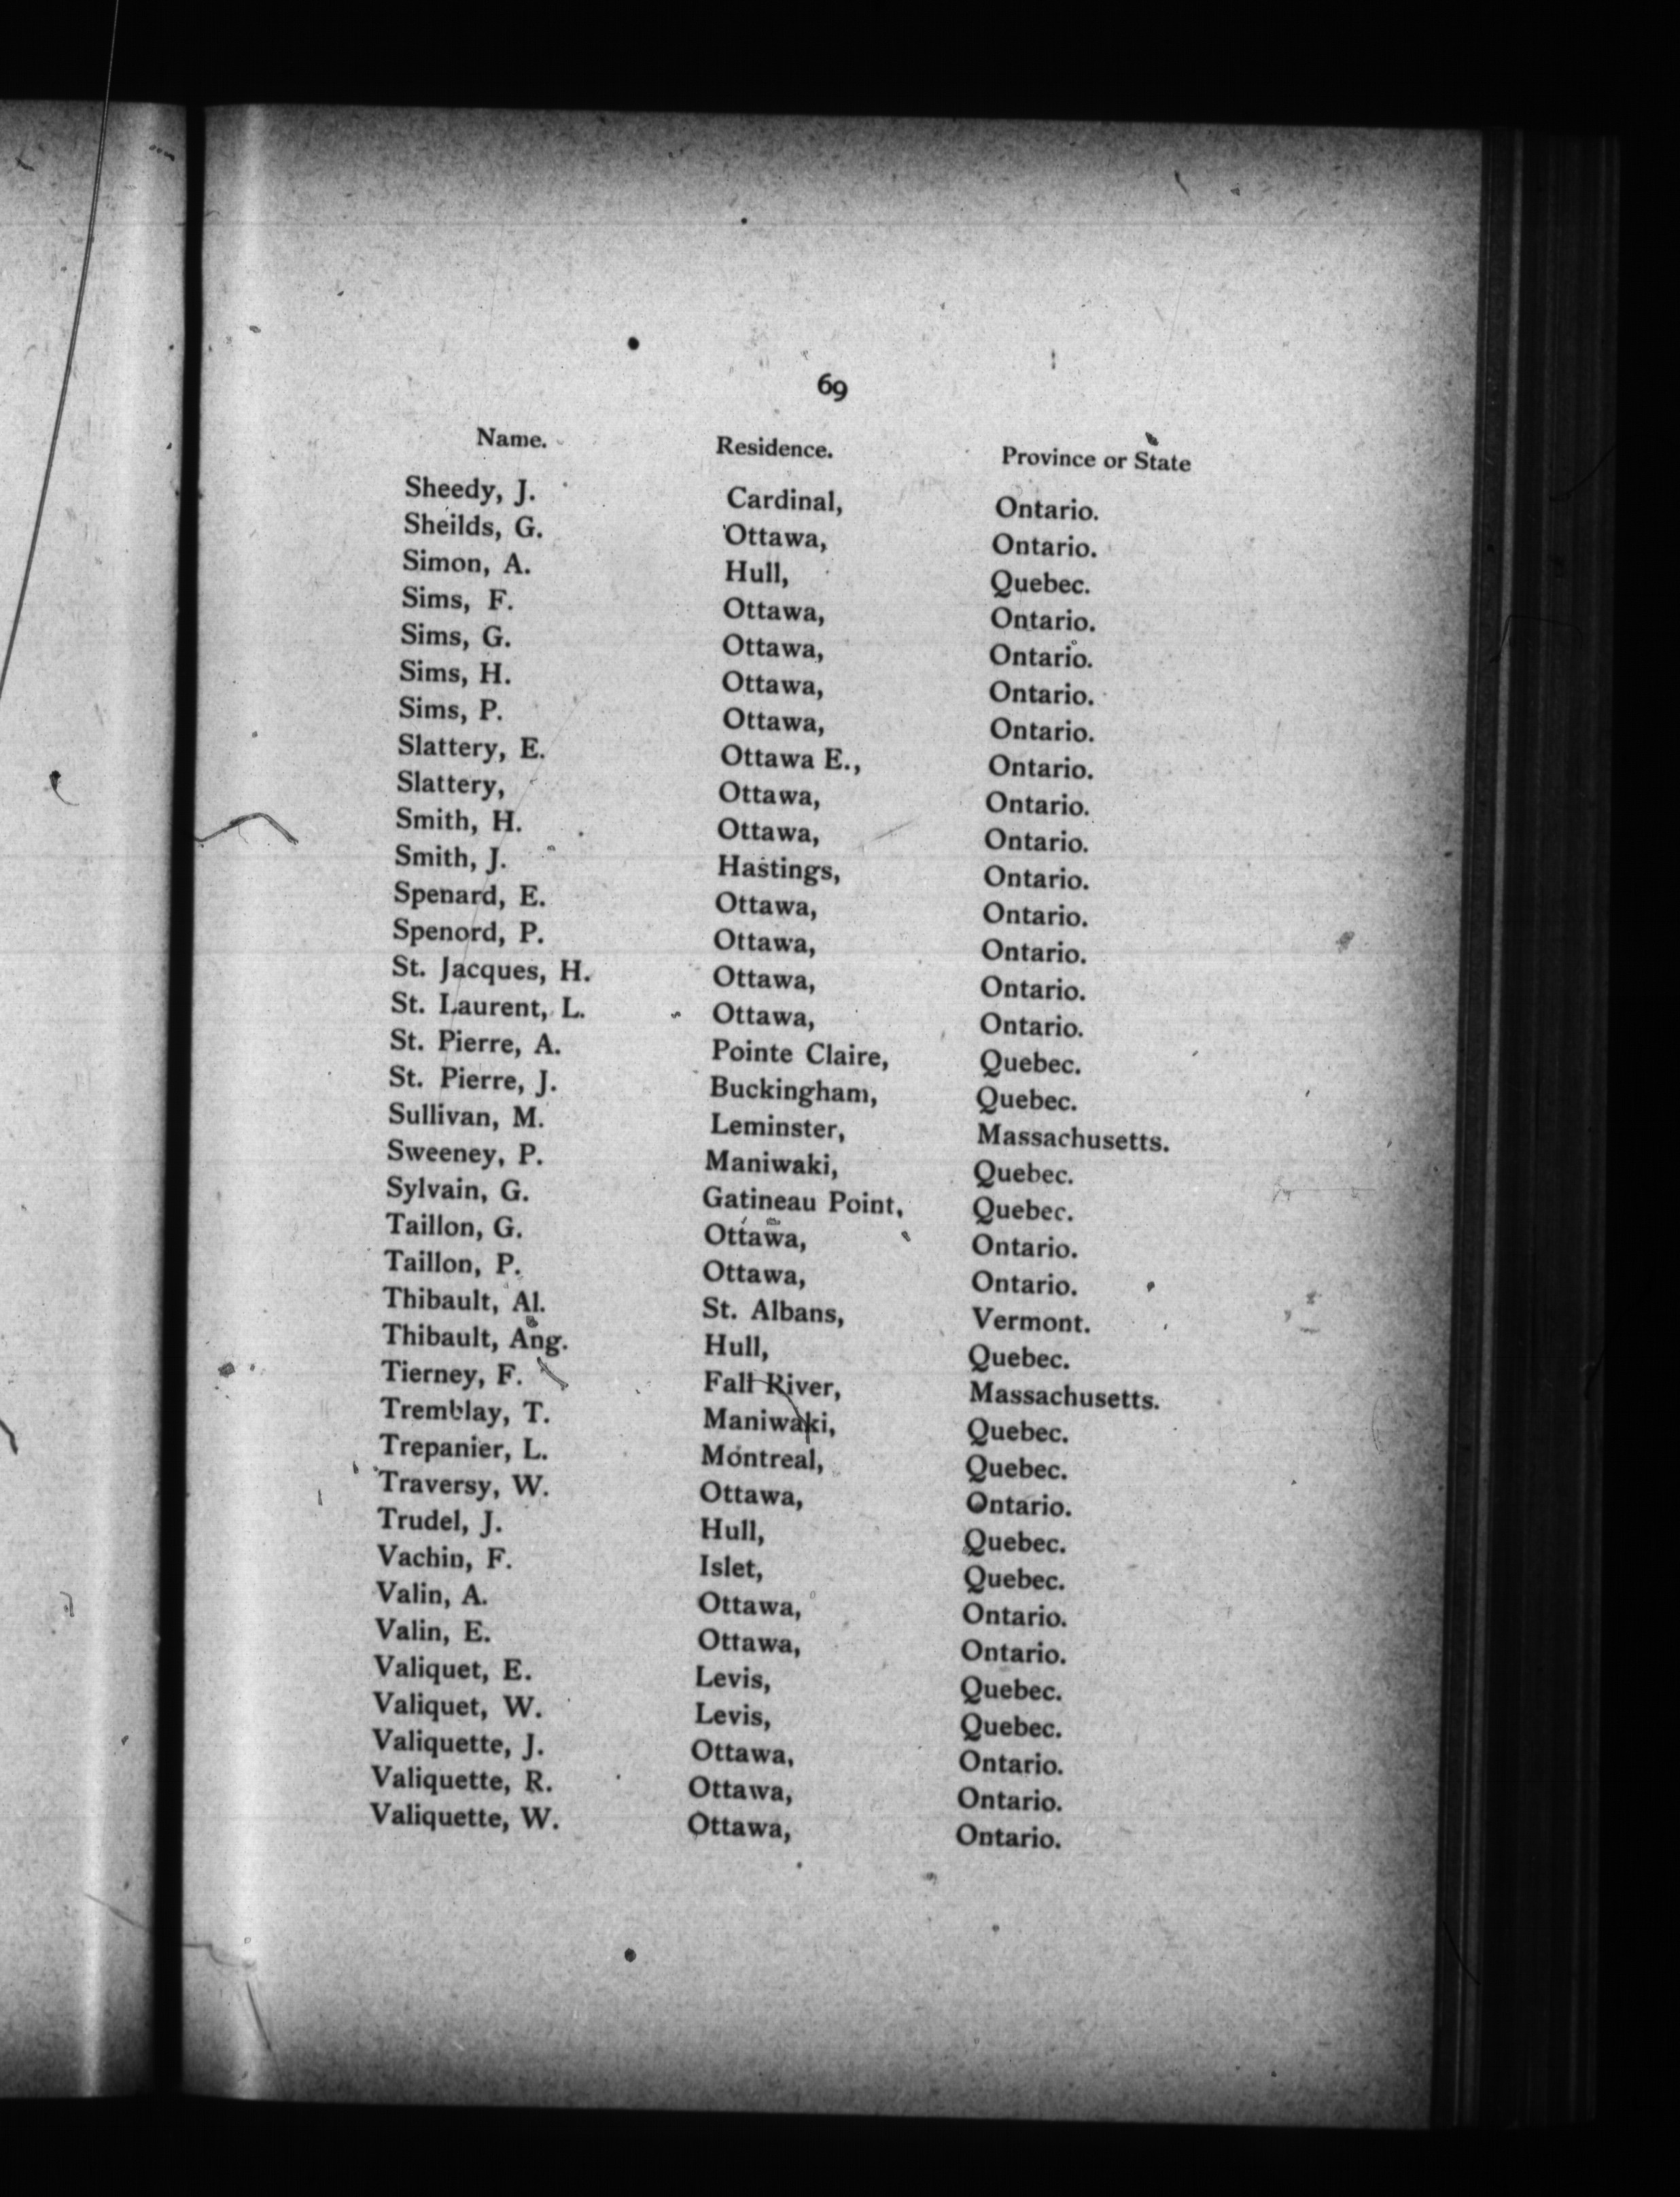 69
Name. Residence. Province or State
Sheedy, J. Cardinal, Ontario.
Sheilds, G. Ottawa, Ontario.
Simon, A. Hull, Quebec.
Sims, F. Ottawa, Ontario.
Sims, G. Ottawa, Ontario.
Sims, H. Ottawa, Ontario.
Sims, P. Ottawa, Ontario.
Slattery, E. Ottawa E., Ontario.
Slattery, Ottawa, Ontario.
Smith, H. Ottawa, Ontario.
Smith, J. Hastings, Ontario.
Spenard, E. Ottawa, Ontario.
Spenord, P. Ottawa, Ontario.
St. Jacques, H. Ottawa, Ontario.
St. Laurent, L. Ottawa, Ontario.
St. Pierre, A. Pointe Claire, Quebec.
St. Pierre, J. Buckingham, Quebec.
Sullivan, M. Leminster, Massachusetts.
Sweeney, P. Maniwaki, Quebec.
Sylvain, G. Gatineau Point, Quebec.
Taillon, G. Ottawa, Ontario.
Taillon, P. Ottawa, Ontario.
Thibault, Al. St. Albans, Vermont.
Thibault, Ang. Hull, Quebec.
Tierney, F. Fall River, Massachusetts.
Tremblay, T. Maniwaki, Quebec.
Trepanier, L. Montreal, Quebec.
Traversy, W. Ottawa, Ontario.
Trudel, J. Hull, Quebec.
Vachin, F. Islet, Quebec.
Valin, A. Ottawa, Ontario.
Valin, E. Ottawa, Ontario.
Valiquet, E. Levis, Quebec.
Valiquet, W. Levis, Quebec.
Valiquette, J. Ottawa, Ontario.
Valiquette, R. Ottawa, Ontario.
Valiquette, W. Ottawa, Ontario.